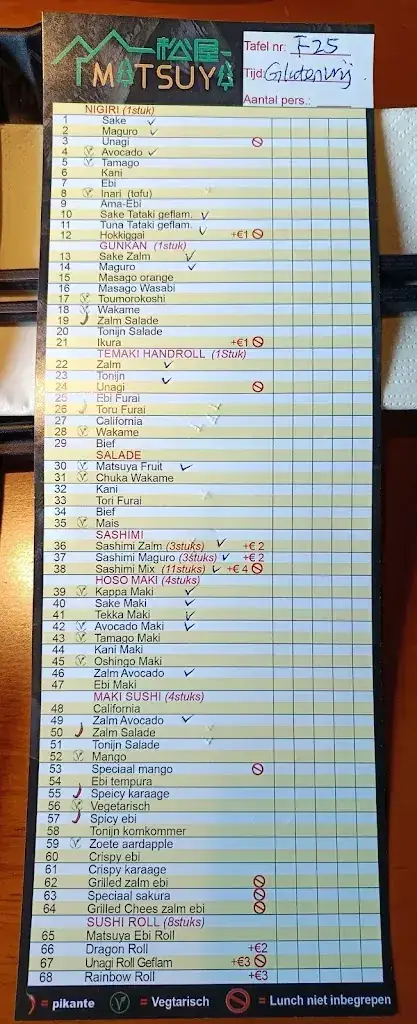 松屋
MATSUYA
Tafel nr: F25
Tijd: Glutenvrij.
Aantal pers.:
NIGIRI (1stuk)
1 Sake ✓
2 Maguro ✓
3 Unagi
4 Avocado ✓
5 Tamago
6 Kani
7 Ebi
8 Inari (tofu)
9 Ama-Ebi
10 Sake Tataki geflam. ✓
11 Tuna Tataki geflam.
12 Hokkiggai ✓ +€1
GUNKAN (1stuk)
13 Sake Zalm ✓
14 Maguro ✓
15 Masago orange
16 Masago Wasabi
17 Toumorokoshi
18 Wakame
19 Zalm Salade
20 Tonijn Salade
21 Ikura +€1
TEMAKI HANDROLL (1Stuk)
22 Zalm ✓
23 Tonijn ✓
24 Unagi
25 Ebi Furai
26 Toru Furai
27 California
28 Wakame
29 Bief
SALADE
30 Matsuya Fruit ✓
31 Chuka Wakame
32 Kani
33 Tori Furai
34 Bief
35 Mais
SASHIMI
36 Sashimi Zalm (3stuks) ✓ +€ 2
37 Sashimi Maguro (3stuks) ✓ +€ 2
38 Sashimi Mix (11stuks) ✓ +€ 4
HOSO MAKI (4stuks)
39 Kappa Maki ✓
40 Sake Maki ✓
41 Tekka Maki ✓
42 Avocado Maki ✓
43 Tamago Maki
44 Kani Maki
45 Oshingo Maki
46 Zalm Avocado ✓
47 Ebi Maki
MAKI SUSHI (4stuks)
48 California
49 Zalm Avocado ✓
50 Zalm Salade
51 Tonijn Salade
52 Mango
53 Speciaal mango
54 Ebi tempura
55 Speicy karaage
56 Vegetarisch
57 Spicy ebi
58 Tonijn komkommer
59 Zoete aardapple
60 Crispy ebi
61 Crispy karaage
62 Grilled zalm ebi
63 Speciaal sakura
64 Grilled Chees zalm ebi
SUSHI ROLL (8stuks)
65 Matsuya Ebi Roll
66 Dragon Roll +€2
67 Unagi Roll Geflam +€3
68 Rainbow Roll +€3
= pikante = Vegtarisch = Lunch niet inbegrepen